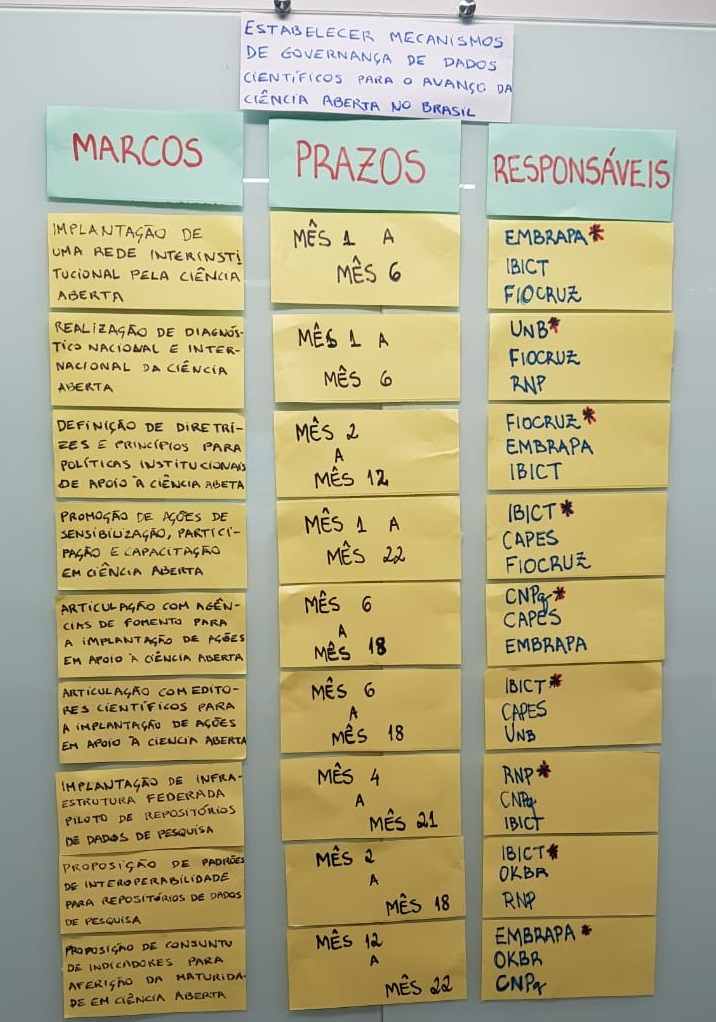 ESTABELECER MECANISMOS
DE GOVERNANÇA DE DADOS
CIENTÍFICOS PARA O AVANÇO DA
CIÊNCIA ABERTA NO BRASIL
MARCOS
PRAZOS
RESPONSÁVEIS
IMPLANTAÇÃO DE
UMA REDE INTERINSTI
TUCIONAL PELA CIÊNCIA
ABERTA
MÊS 1 A
MÊS 6
EMBRAPA*
IBICT
FIOCRUZ
REALIZAÇÃO DE DIAGNÓS-
TICO NACIONAL E INTER-
NACIONAL DA CIÊNCIA
ABERTA
MÊS 1 A
MÊS 6
UNB*
FIOCRUZ
RNP
DEFINIÇÃO DE DIRETRI-
ZES E PRINCÍPIOS PARA
POLÍTICAS INSTITUCIONAIS
DE APOIO À CIÊNCIA ABETA
MÊS 2
A
MÊS 12
FIOCRUZ*
EMBRAPA
IBICT
PROMOÇÃO DE AÇÕES DE
SENSIBILIZAÇÃO, PARTICI-
PAÇÃO E CAPACITAÇÃO
EM CIÊNCIA ABERTA
MÊS 1 A
MÊS 22
IBICT*
CAPES
FIOCRUZ
ARTICULAÇÃO COM AGÊN-
CIAS DE FOMENTO PARA
A IMPLANTAÇÃO DE AÇÕES
EM APOIO À CIÊNCIA ABERTA
MÊS 6
A
MÊS 18
CNPq*
CAPES
EMBRAPA
ARTICULAÇÃO COM EDITO-
RES CIENTÍFICOS PARA
A IMPLANTAÇÃO DE AÇÕES
EM APOIO À CIENCIA ABERTA
MÊS 6
A
MÊS 18
IBICT*
CAPES
UNB
IMPLANTAÇÃO DE INFRA-
ESTRUTURA FEDERADA
PILOTO DE REPOSITÓRIOS
DE DADOS DE PESQUISA
MÊS 4
A
MÊS 21
RNP*
CNPq
IBICT
PROPOSIÇÃO DE PADRÕES
DE INTEROPERABILIDADE
PARA REPOSITÓRIOS DE DADOS
DE PESQUISA
MÊS 2
A
MÊS 18
IBICT*
OKBR
RNP
PROPOSIÇÃO DE CONJUNTO
DE INDICADORES PARA
AFERIÇÃO DA MATURIDA-
DE EM CIÊNCIA ABERTA
MÊS 12
A
MÊS 22
EMBRAPA*
OKBR
CNPq